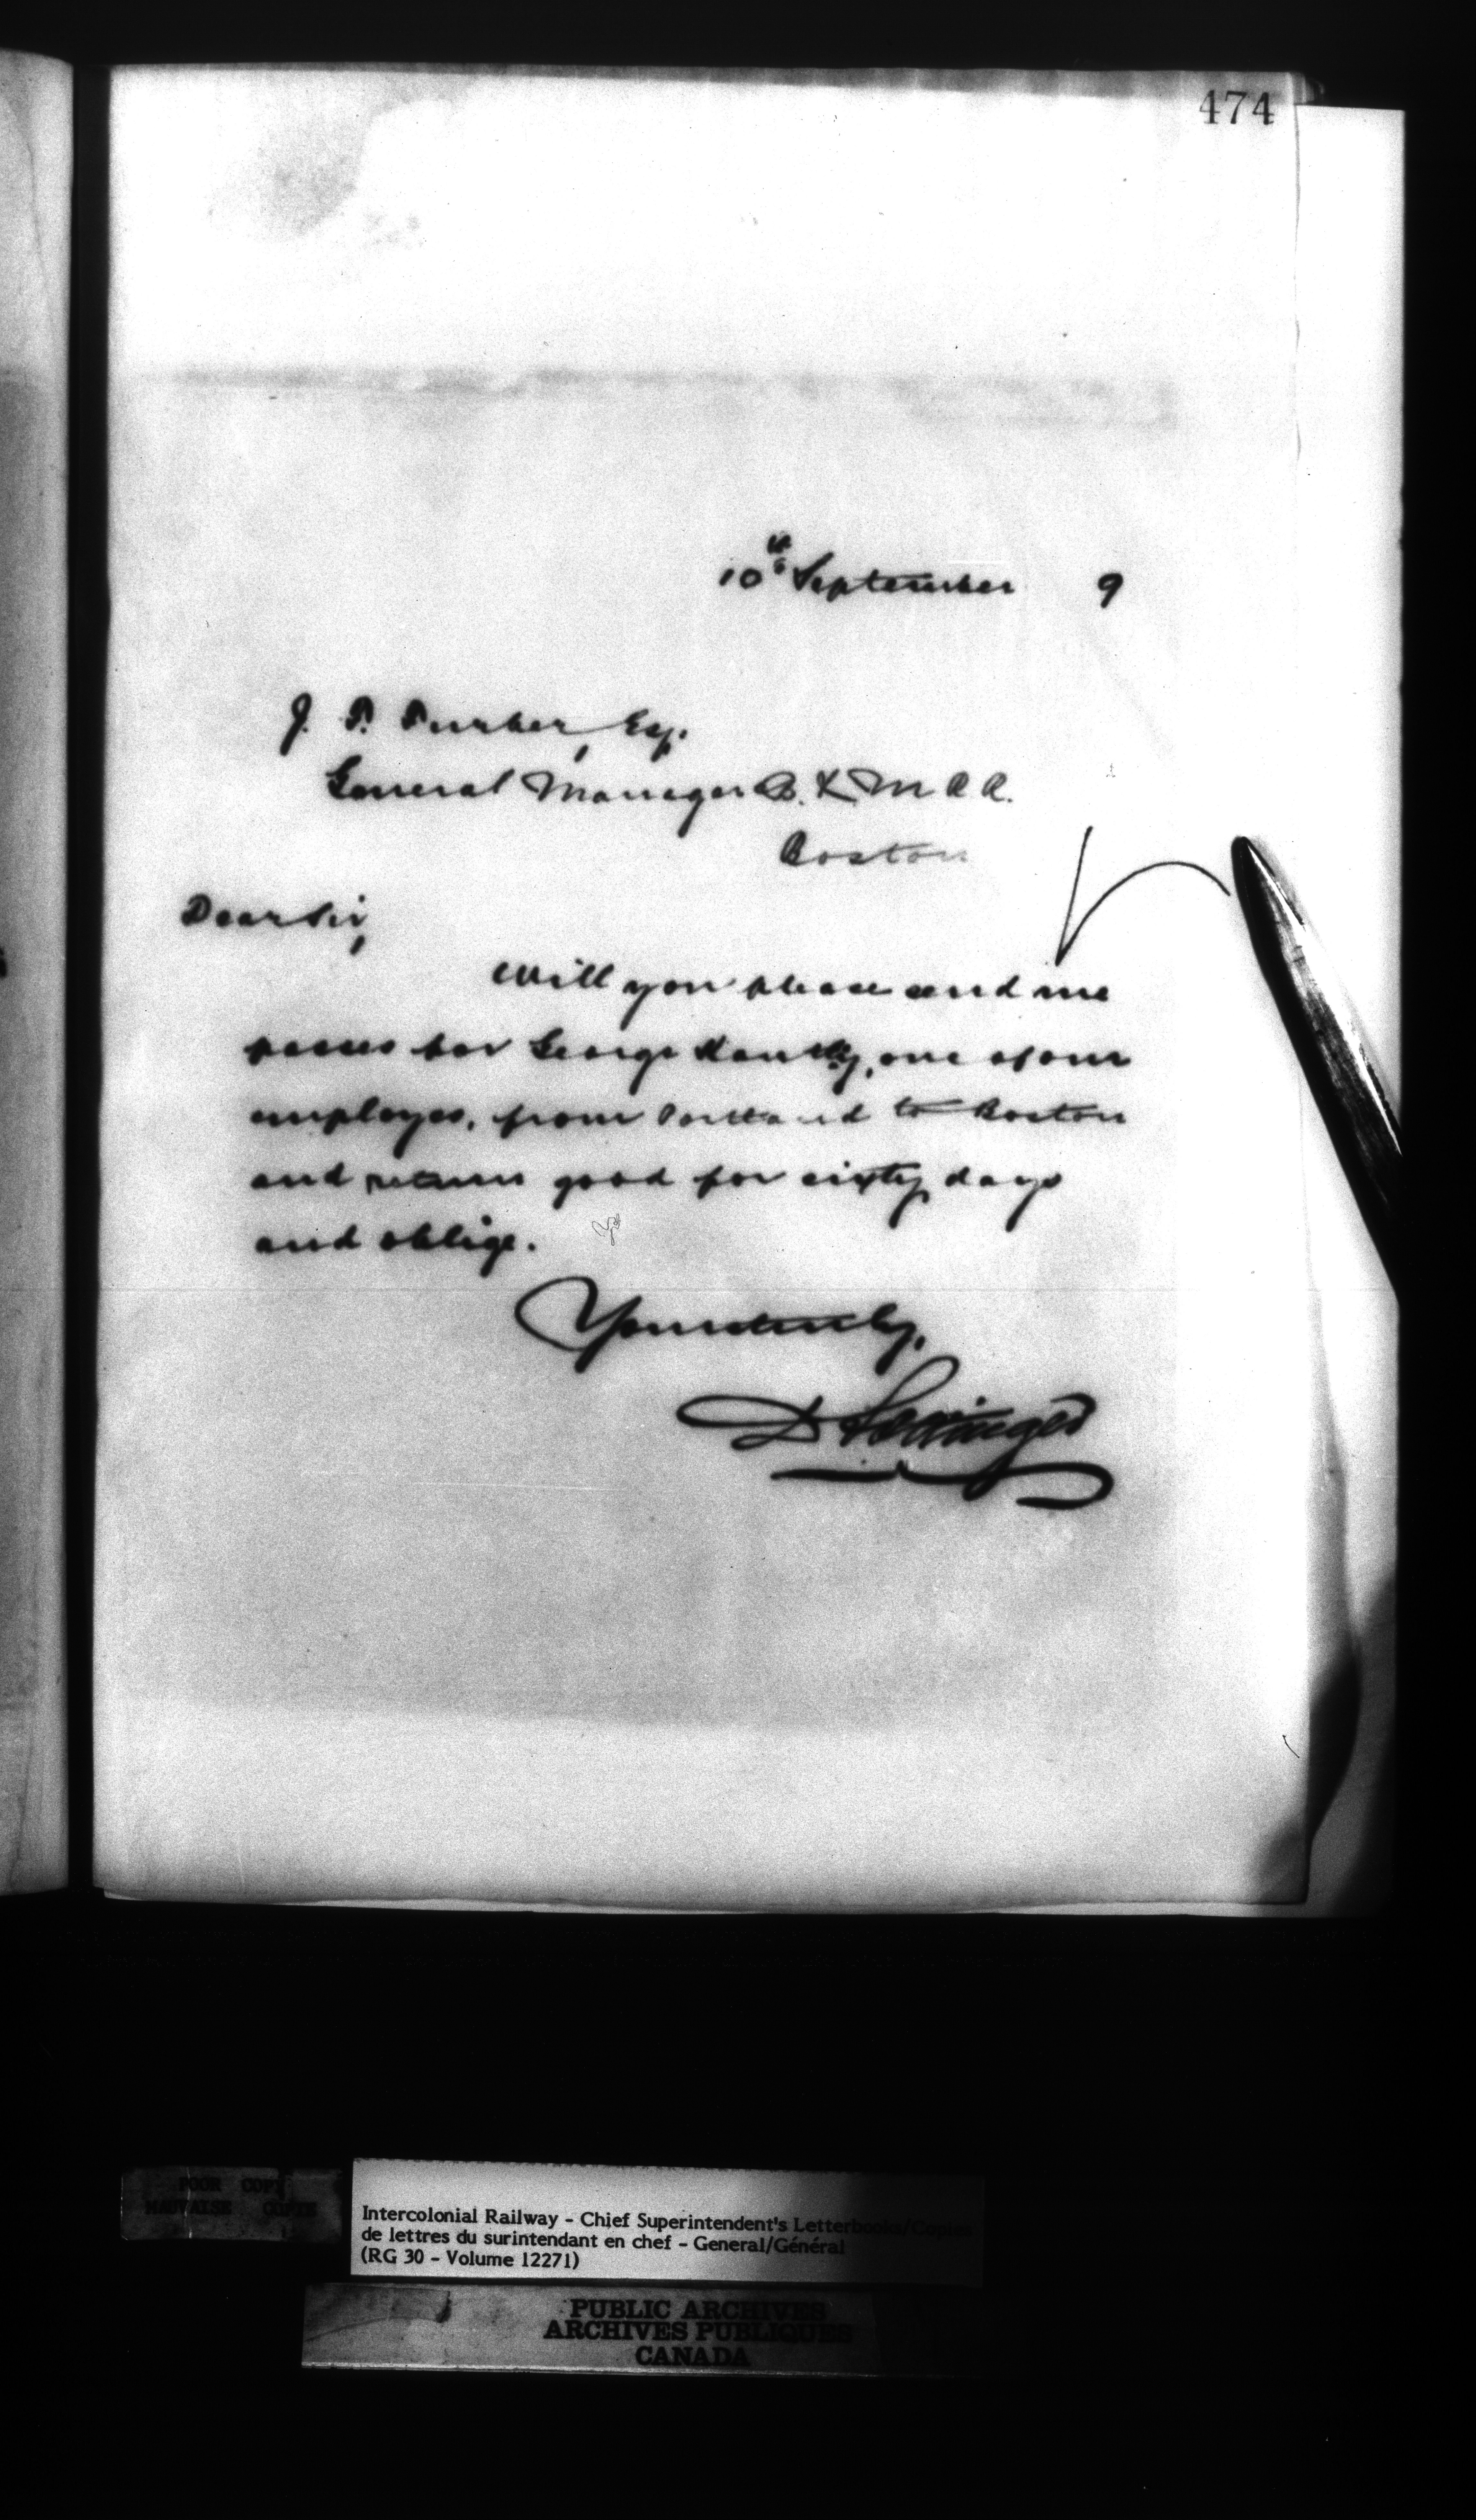 474
10th September 9
J. T. Furber, Esq.
General Manager B. & M. R. R.
Boston
Dear Sir,
Will you please send me
passes for George , one of our
employes, from Portland to Boston
and return good for sixty days
and oblige.
Yours truly,
D Pottinger
POOR COPY
MAUVAISE COPIE
Intercolonial Railway - Chief Superintendent's Letterbooks/Copies
de lettres du surintendant en chef - General/Général
(RG 30 - Volume 12271)
PUBLIC ARCHIVES
ARCHIVES PUBLIQUES
CANADA